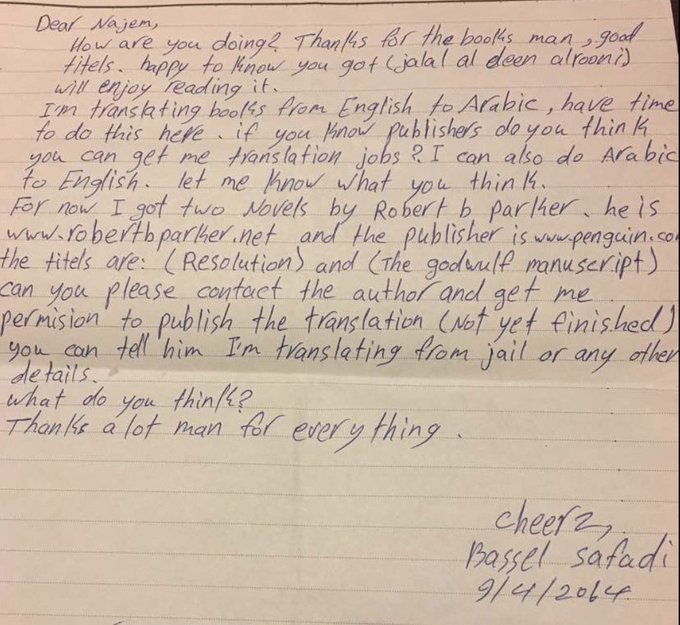 Dear Najem,
How are you doing? Thanks for the books man, good
titels. happy to know you got (jalal al deen alroomi)
will enjoy reading it.
I'm translating books from English to Arabic, have time
to do this here. if you know publishers do you think
you can get me translation jobs? I can also do Arabic
to English. let me know what you think.
For now I got two Novels by Robert b parker. he is
www.robertbparker.net and the publisher is www.penguin.com
the titels are: (Resolution) and (The godwulf manuscript)
can you please contact the author and get me
permision to publish the translation (Not yet finished)
you can tell him I'm translating from jail or any other
details.
what do you think?
Thanks a lot man for everything.
cheerz,
Bassel safadi
9/4/2014